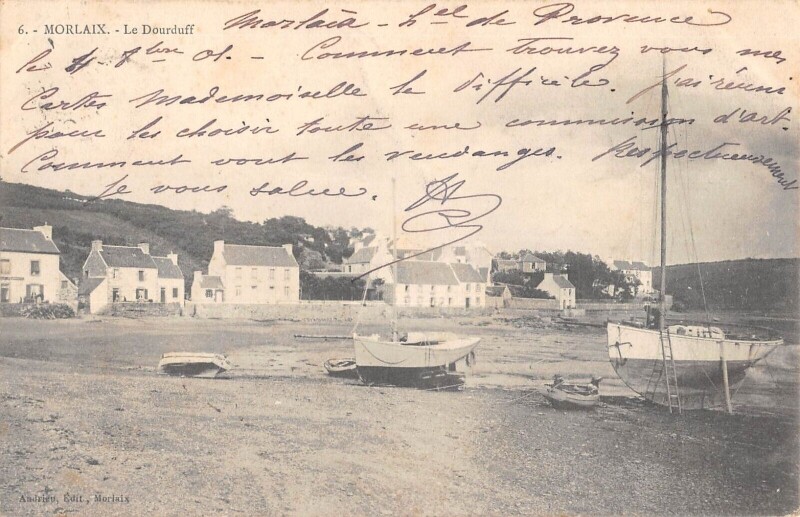 6. - MORLAIX. - Le Dourduff
Morlaix - Hel de Provence
le 4 - 8bre 01. - Comment trouvez vous mes
Cartes Mademoiselle le difficile. J'ai réuni
pour les choisir toute une commission d'art.
Comment vont les vendanges. Respectueusement
je vous salue.
Andrieu, Édit., Morlaix